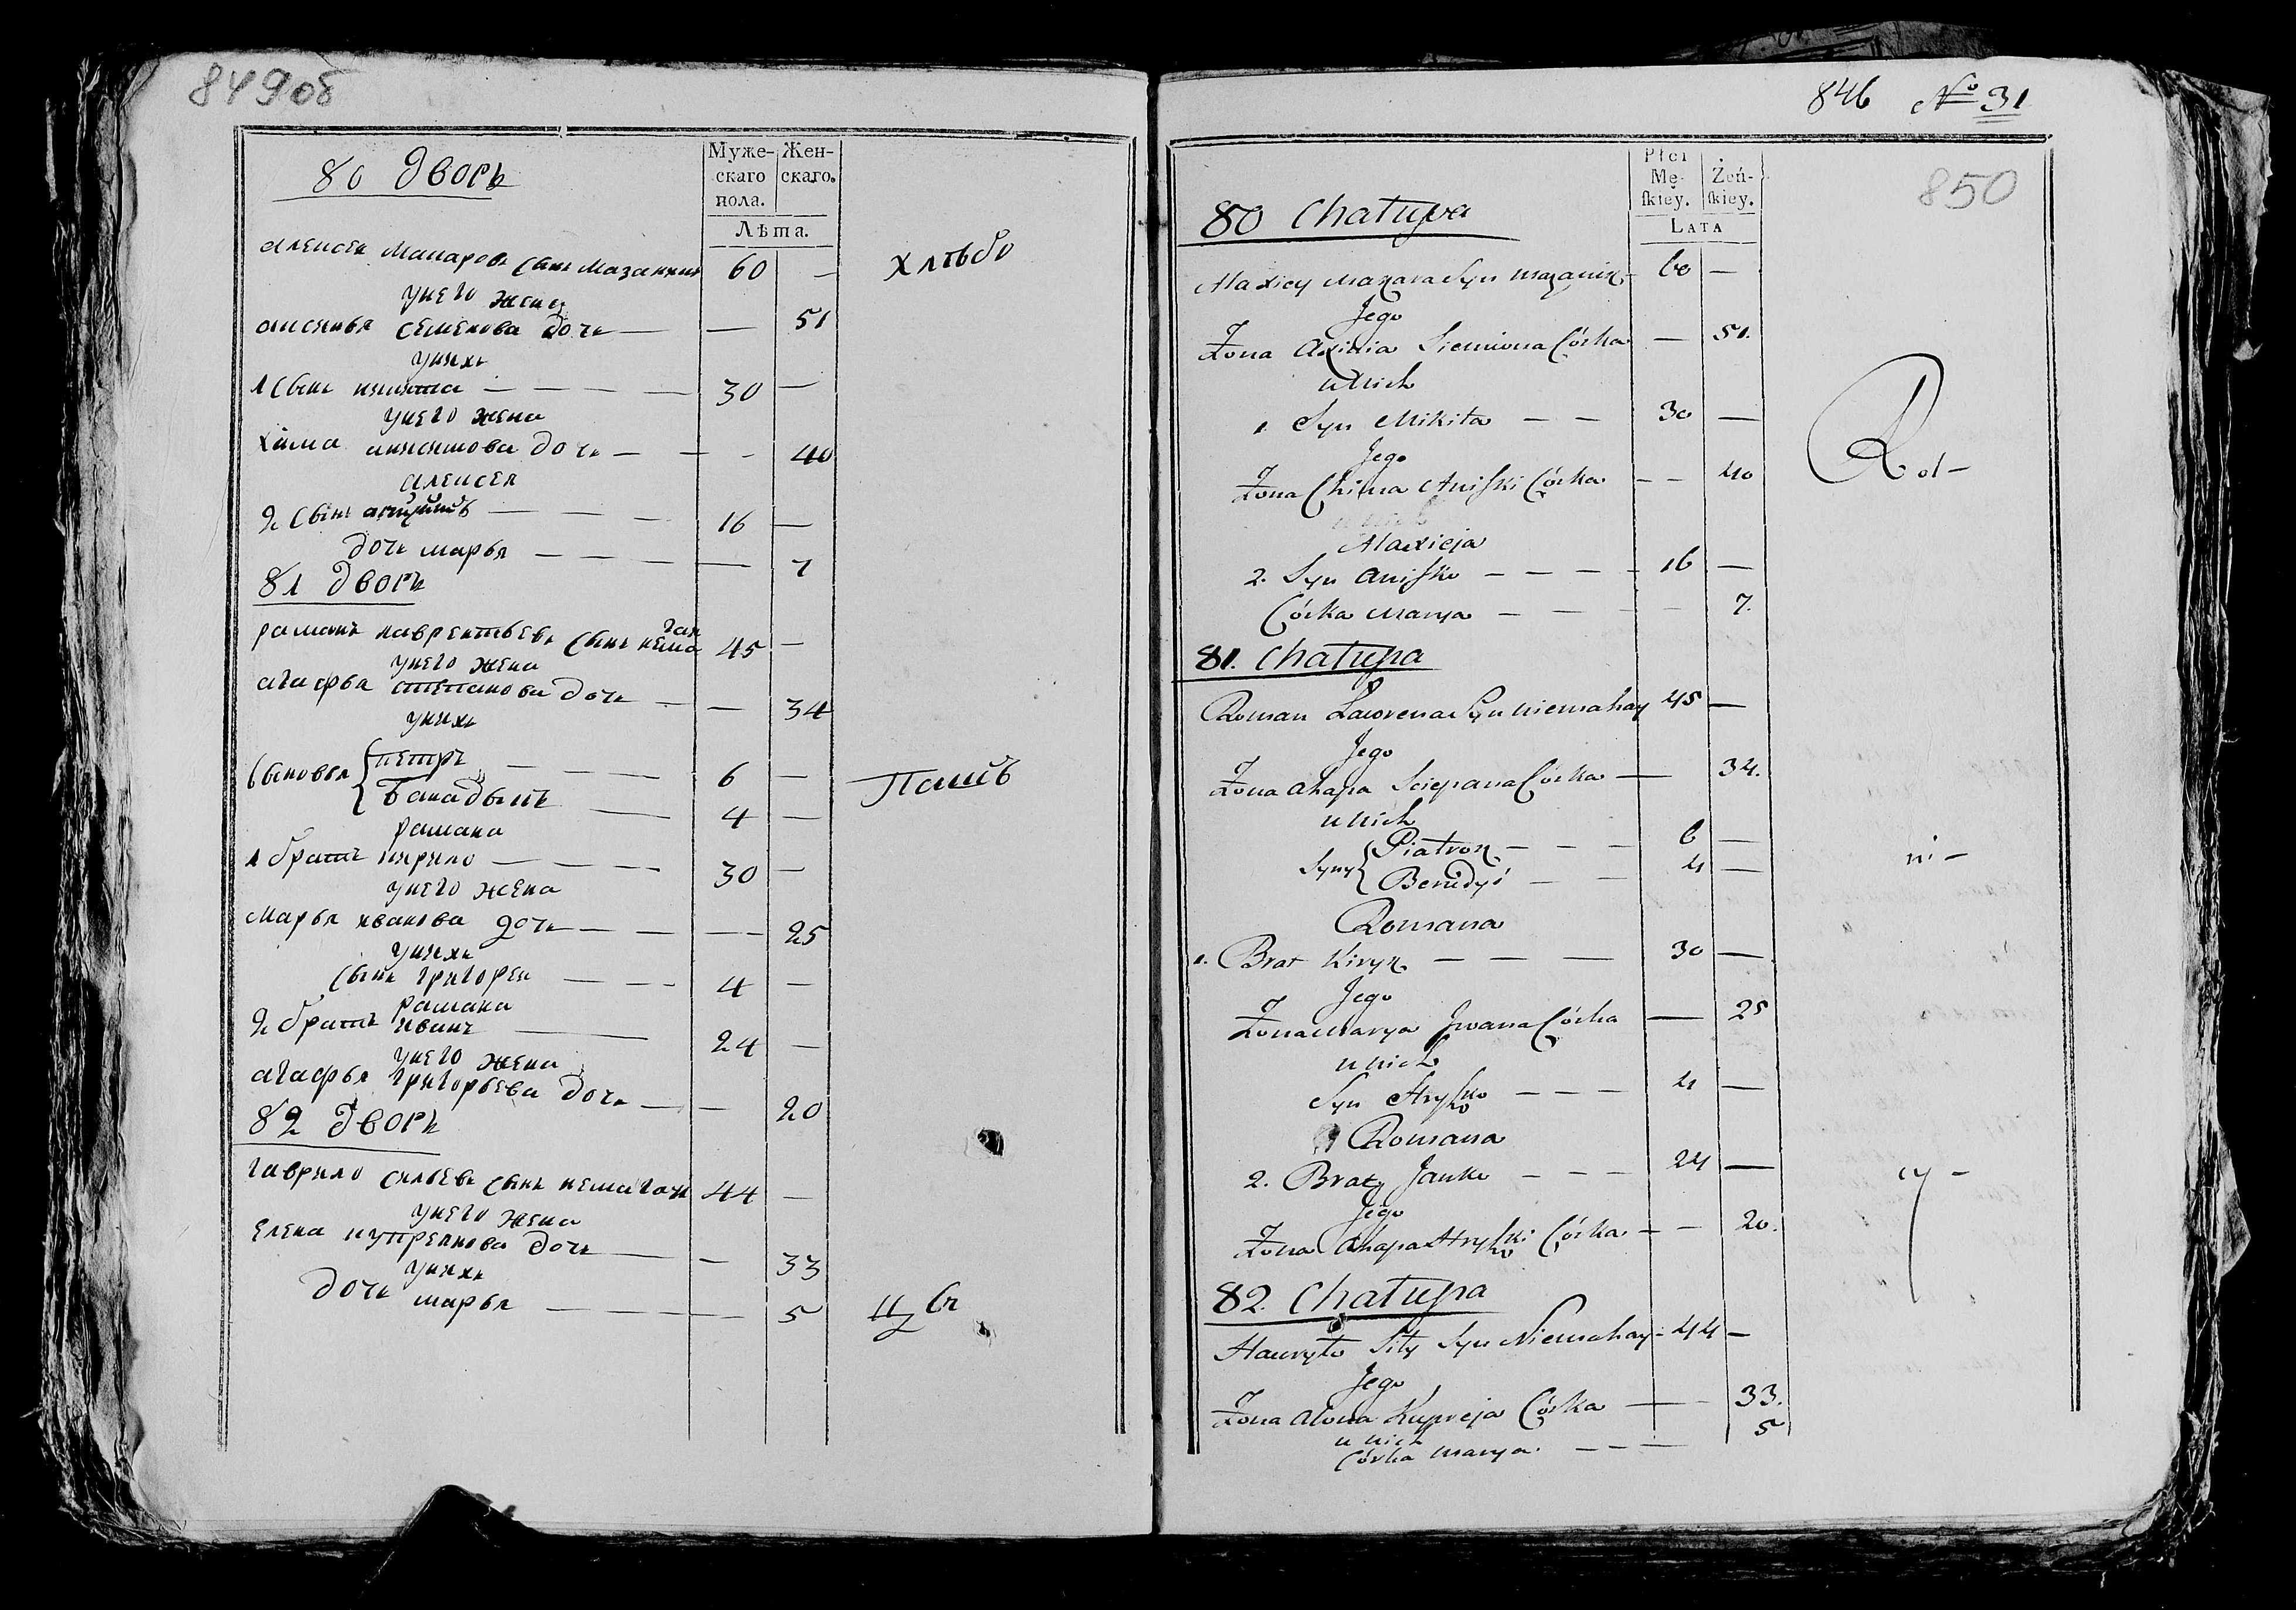 849об
80 дворъ
Муже-
скаго
пола.
Жен-
скаго.
Лѣта.
алексеи макаровъ сынъ мазаникъ 60 —
унего жена
аксинья семенова дочь — — 51
унихъ
1 сынъ никита — — — — 30 —
унего жена
хима анисимова дочь — — - 40
алексея
2 сынъ — — — - 16 —
дочь марья — — — — 7
81 дворъ
раманъ лаврентьевъ сынъ немагаи 45 —
унего жена
агафья степанова дочь - — 34
унихъ
сыновья { петръ — — — — 6 —
— 4 —
рамана
1 братъ кирило — — — — 30 —
унего жена
марья иванова дочь — — — - 25
унихъ
сынъ григореи — — - - 4 —
рамана
2 братъ иванъ — — 24 —
унего жена
агафья григорьева дочь — — 20
82 дворъ
гаврило сильевъ сынъ немагаи 44 —
унего жена
елена купреянова дочь — — 33
унихъ
дочь марья — — — — 5
хлѣбо
846 № 31
850
Płci
Mę-
ſkiey.
Żeń-
ſkiey.
LATA
80 Chałupa
Alaxiey Makara Syn Mazanik - 60 —
Jego
Żona Axinia Siemiona Córka — 51.
u nich
1. Syn Mikita — — 30 —
Jego
Żona Chima Aniſki Córka — — 40
Alaxieja
2. Syn Aniſko — — — - 16 —
Córka Marya — — — 7.
81. Chałupa
Roman Ławrena Syn Niemahay 45 —
Jego
Żona Ahapa Sciepana Córka — 34.
u nich
Syny { Piatrok — — — 6 —
— — 4 —
Romana
1. Brat Kiryk — — — 30 —
Jego
Żona Marya Jwana Córka — 25
u nich
Syn Hryſko — — — 4 —
Romana
2. Brat Janko — — — 24 —
Jego
Żona Ahapa Hryſki Córka — — 20.
82. Chałupa
Hawryło Siły Syn Niemahay - 44 —
Jego
Żona Alona Kupreja Córka — - 33.
u nich
Córka Marya. — — — 5